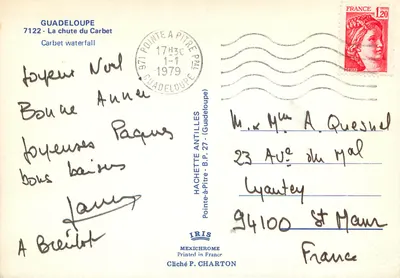 GUADELOUPE
7122 - La chute du Carbet
Carbet waterfall
971 POINTE A PITRE PPAL
17H30
1-1
1979
GUADELOUPE
FRANCE
1,20
Joyeux Noël
Bonne Année
Joyeuses Paques
bons baisers
A Bientot
HACHETTE ANTILLES
Pointe-à-Pitre - B.P. 27 - (Guadeloupe)
M. & Mme A. Quesnel
23 Ave du Mal
Lyautey
94100 St Maur
France
IRIS
MEXICHROME
Printed in France
Cliché P. CHARTON